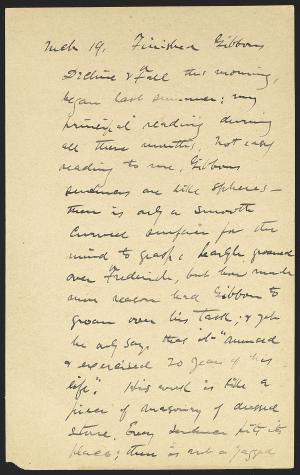 Mch 19. Finished Gibbons
Decline & Fall this morning,
began last summer; my
principal reading during
all these months. Not easy
reading to me. Gibbons
sentences are like spheres –
there is only a smooth
curved surface for the
mind to grasp. Carlyle groaned
over Frederick, but how much
more reason had Gibbon to
groan over his task; & yet
he only says that it "amused
& exercised 20 years of his
life". His work is like a
piece of masonry of dressed
stone. Every sentence fits its
place; there is not a jagged